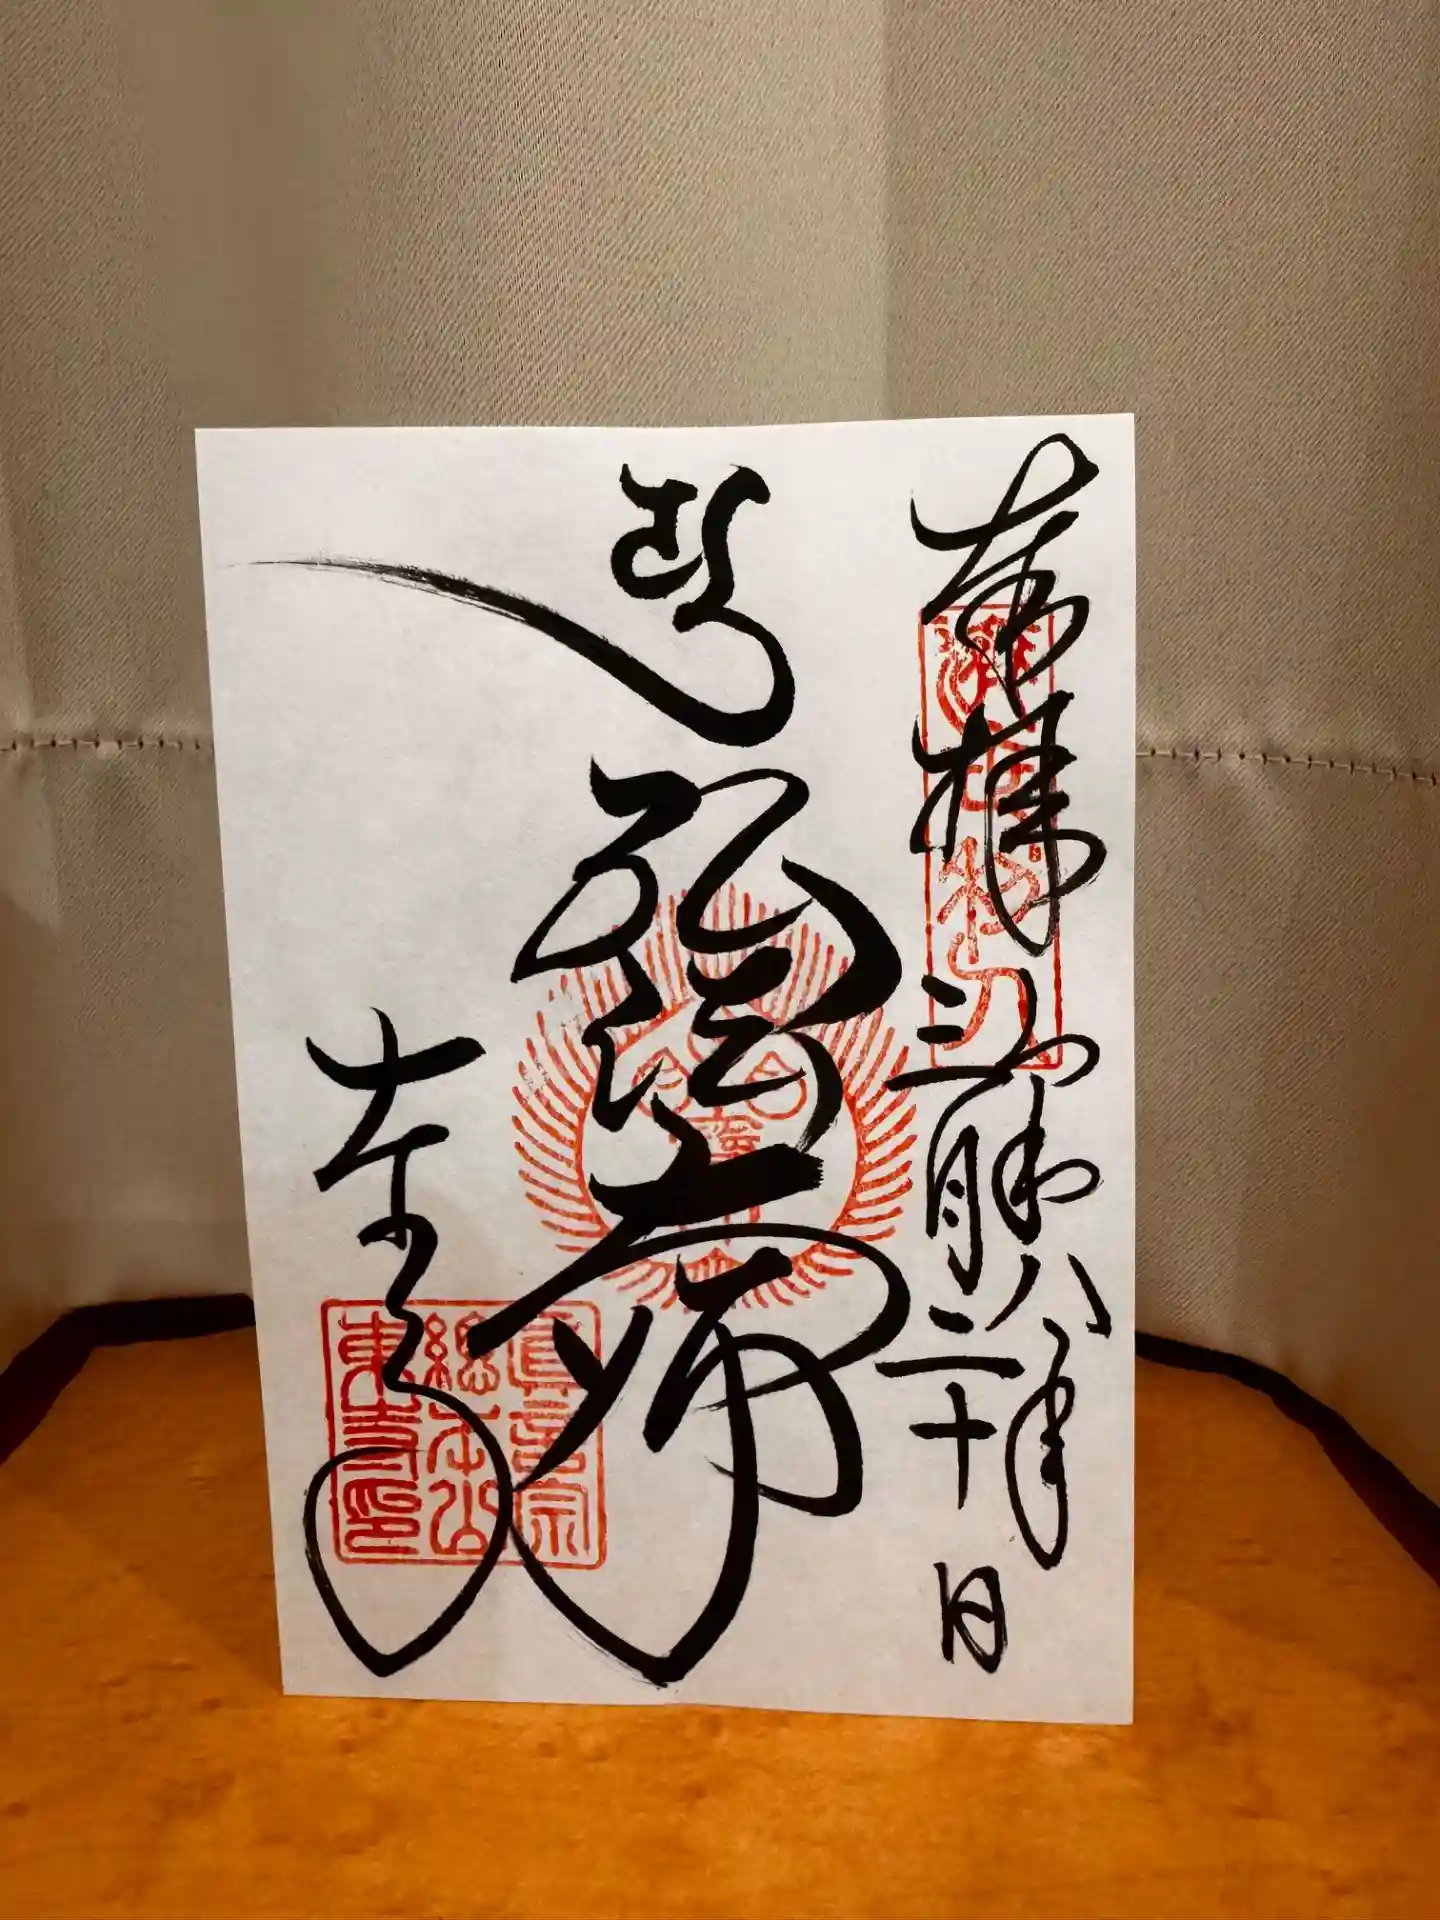 奉拝
令和八年
三月二十日
弘法大師
東寺
眞言宗
總本山
東寺印